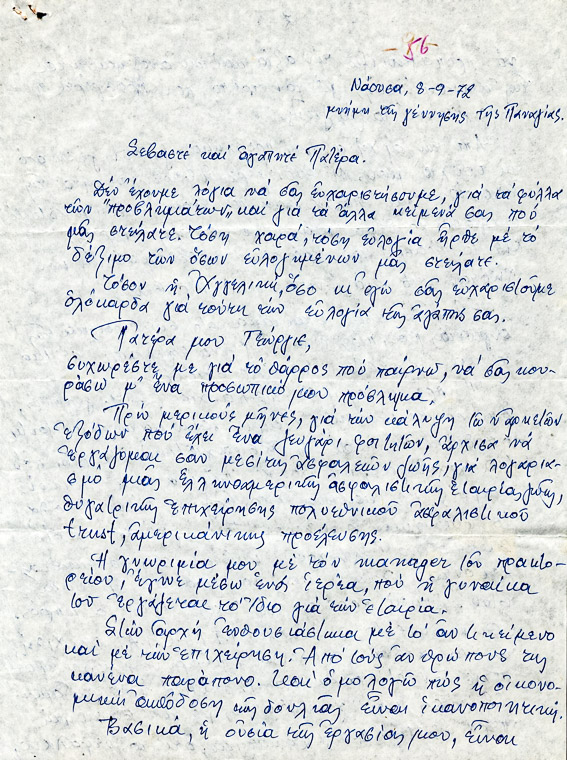 -56-
Νάουσα, 8-9-72
μνήμη τῆς γέννησης τῆς Παναγίας.
Σεβαστέ καί ἀγαπητέ Πατέρα.
Δέν ἔχουμε λόγια νά σᾶς εὐχαριστήσουμε, γιά τά φύλλα
τῶν "προβλημάτων" καί γιά τά ἄλλα κείμενά σας πού
μᾶς στείλατε. Τόση χαρά, τόση εὐλογία ἦρθε μέ τό
δέξιμο τῶν ὅσων εὐλογημένων μᾶς στείλατε.
Τόσον ἡ Ἀγγελική, ὅσο κι' ἐγώ σᾶς εὐχαριστοῦμε
ὁλόκαρδα γιά τούτη τήν εὐλογία τῆς ἀγάπης σας.
Πατέρα μου Γεώργιε,
συχωρέστε με γιά τό θάρρος πού παίρνω, νά σᾶς κου-
ράσω μ' ἕνα προσωπικό μου πρόβλημα.
Πρίν μερικούς μῆνες, γιά τήν κάλυψη τῶν ἀρκετῶν
ἐξόδων πού ἔχει ἕνα ζευγάρι φοιτητῶν, ἄρχισα νά
ἐργάζομαι σάν μεσίτης ἀσφαλειῶν ζωῆς, γιά λογαρια-
σμό μιᾶς ἑλληνοαμερικανικῆς ἀσφαλιστικῆς ἑταιρίας ζωῆς,
θυγατρικῆς ἐπιχείρησης πολυεθνικοῦ ἀσφαλιστικοῦ
trust, ἀμερικάνικης προέλευσης.
Ἡ γνωριμία μου μέ τόν manager τοῦ πρακτο-
ρείου, ἔγινε μέσω ἑνός ἱερέα, πού ἡ γυναίκα
του ἐργάζεται τό ἴδιο γιά τήν ἑταιρία.
Στήν ἀρχή ἐνθουσιάστηκα μέ τό ἀντικείμενο
καί μέ τήν ἐπιχείρηση. Ἀπό τούς ἀνθρώπους της
κανένα παράπονο. Καί ὁμολογῶ πώς ἡ οἰκονο-
μική ἀπόδοση τῆς δουλειᾶς εἶναι ἱκανοποιητική.
Βασικά, ἡ οὐσία τῆς ἐργασίας μου, εἶναι